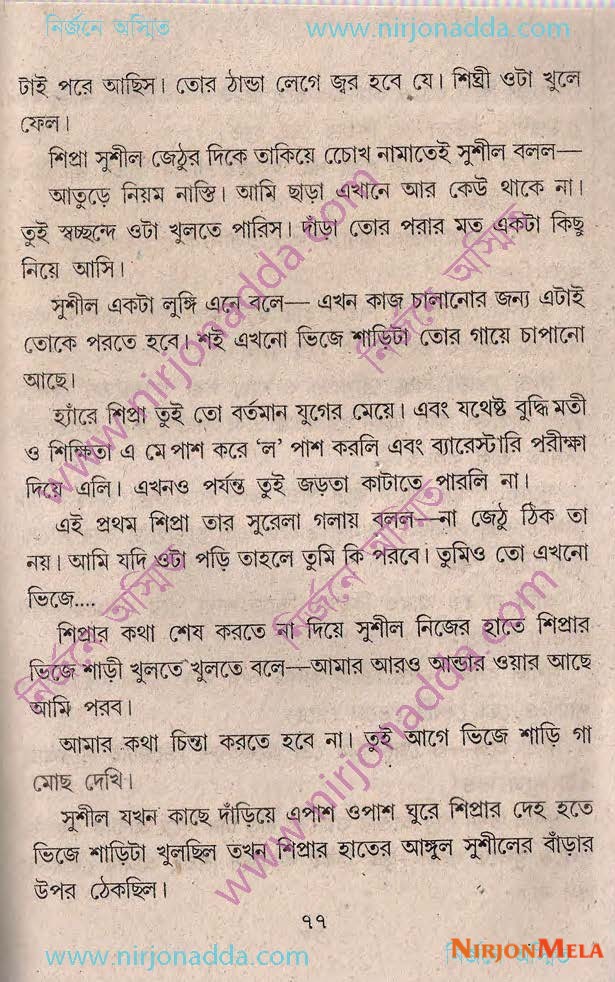 নির্জনে অস্মিত www.nirjonadda.com
টাই পরে আছিস। তোর ঠান্ডা লেগে জ্বর হবে যে। শিঘ্রী ওটা খুলে
ফেল।
শিপ্রা সুশীল জেঠুর দিকে তাকিয়ে চোেখ নামাতেই সুশীল বলল—
আতুড়ে নিয়ম নাস্তি। আমি ছাড়া এখানে আর কেউ থাকে না।
তুই স্বচ্ছন্দে ওটা খুলতে পারিস। দাঁড়া তোর পরার মত একটা কিছু
নিয়ে আসি।
সুশীল একটা লুঙ্গি এনে বলে— এখন কাজ চালানোর জন্য এটাই
তোকে পরতে হবে। শই এখনো ভিজে শাড়িটা তোর গায়ে চাপানো
আছে।
হ্যাঁরে শিপ্রা তুই তো বর্তমান যুগের মেয়ে। এবং যথেষ্ট বুদ্ধি মতী
ও শিক্ষিতা এ মে পাশ করে ‘ল’ পাশ করলি এবং ব্যারেস্টারি পরীক্ষা
দিয়ে এলি। এখনও পর্যন্ত তুই জড়তা কাটাতে পারলি না।
এই প্রথম শিপ্রা তার সুরেলা গলায় বলল—না জেঠু ঠিক তা
নয়। আমি যদি ওটা পড়ি তাহলে তুমি কি পরবে। তুমিও তো এখনো
ভিজে....
শিপ্রার কথা শেষ করতে না দিয়ে সুশীল নিজের হাতে শিপ্রার
ভিজে শাড়ী খুলতে খুলতে বলে—আমার আরও আন্ডার ওয়ার আছে
আমি পরব।
আমার কথা চিন্তা করতে হবে না। তুই আগে ভিজে শাড়ি গা
মোছ দেখি।
সুশীল যখন কাছে দাঁড়িয়ে এপাশ ওপাশ ঘুরে শিপ্রার দেহ হতে
ভিজে শাড়িটা খুলছিল তখন শিপ্রার হাতের আঙ্গুল সুশীলের বাঁড়ার
উপর ঠেকছিল।
১১
www.nirjonadda.com নির্জনে অস্মিত
NIRJONMELA
www.nirjonadda.com
নির্জনে অস্মিত
নির্জনে অস্মিত
নির্জনে অস্মিত
www.nirjonadda.com